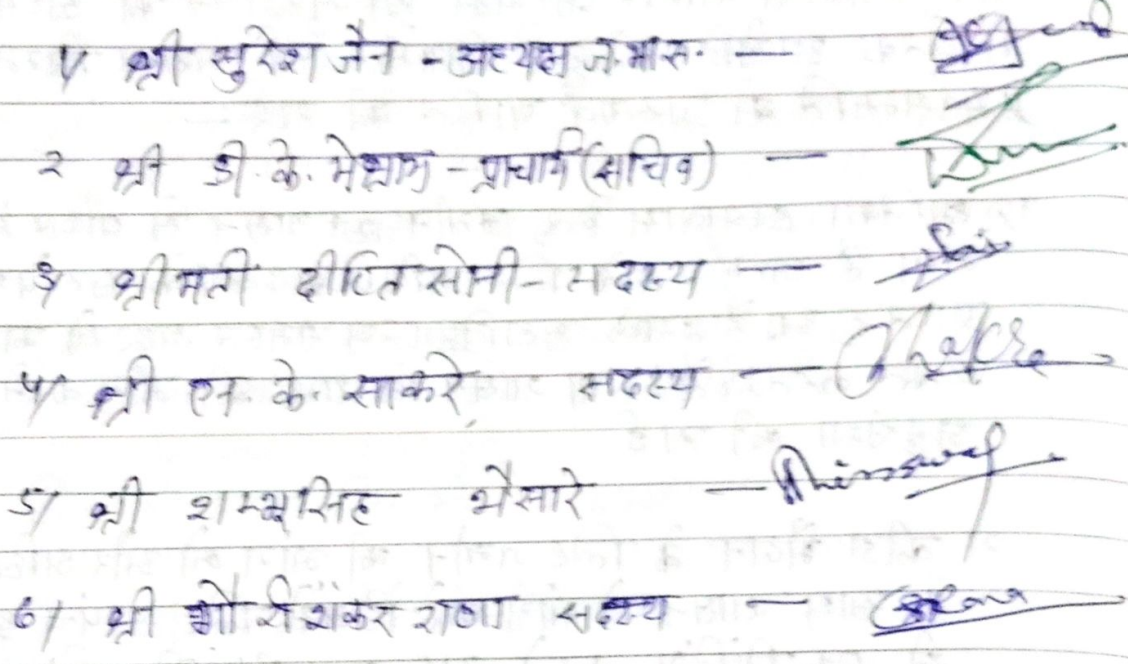 1/ श्री सुरेश जैन - अध्यक्ष ज.भा.स. —
2 श्री डी. के. मेश्राम - प्राचार्य (सचिव) —
3/ श्रीमती दीप्ति सोनी - सदस्य —
4/ श्री एन के. साकरे, सदस्य —
5/ श्री शम्भूसिंह भैसारे —
6/ श्री गौरीशंकर राणा सदस्य —